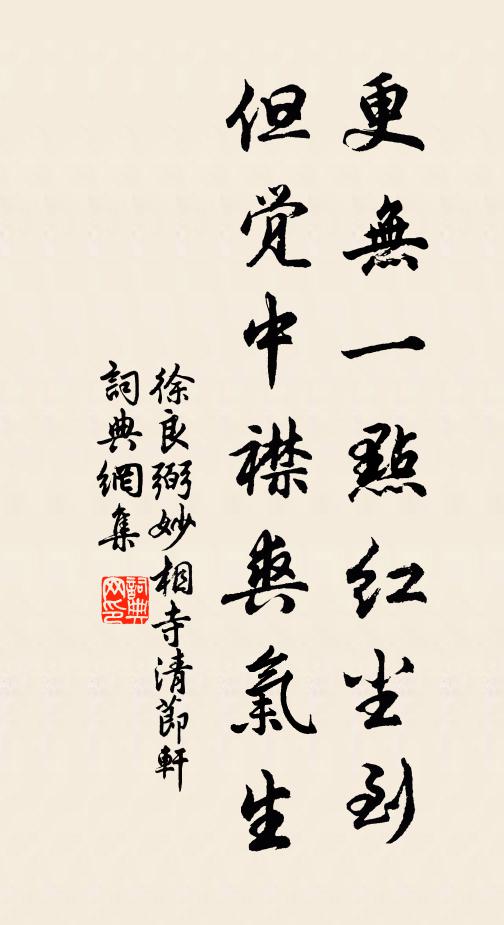 更無一點紅尘到
但覚中襟爽氣生
徐良弼妙相寺清節軒
詞典網集
詞典网印